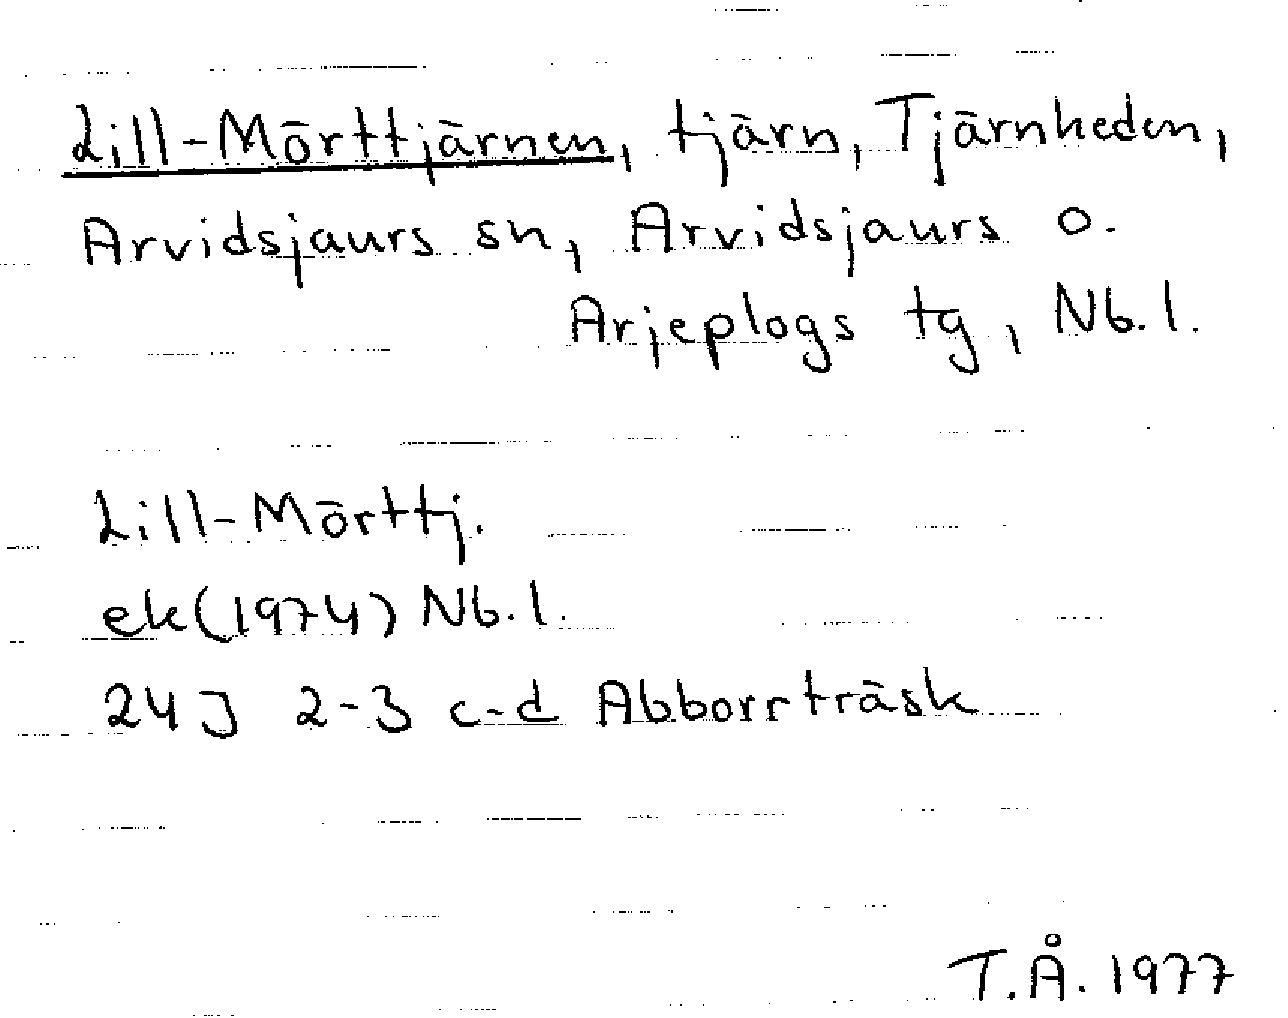 Lill-Mörttjärnen, tjärn, Tjärnheden,
Arvidsjaurs sn, Arvidsjaurs o.
Arjeplogs tg, Nb.l.
Lill-Mörttj.
ek(1974) Nb.l.
24J 2-3 c-d Abborrträsk
T.Å. 1977